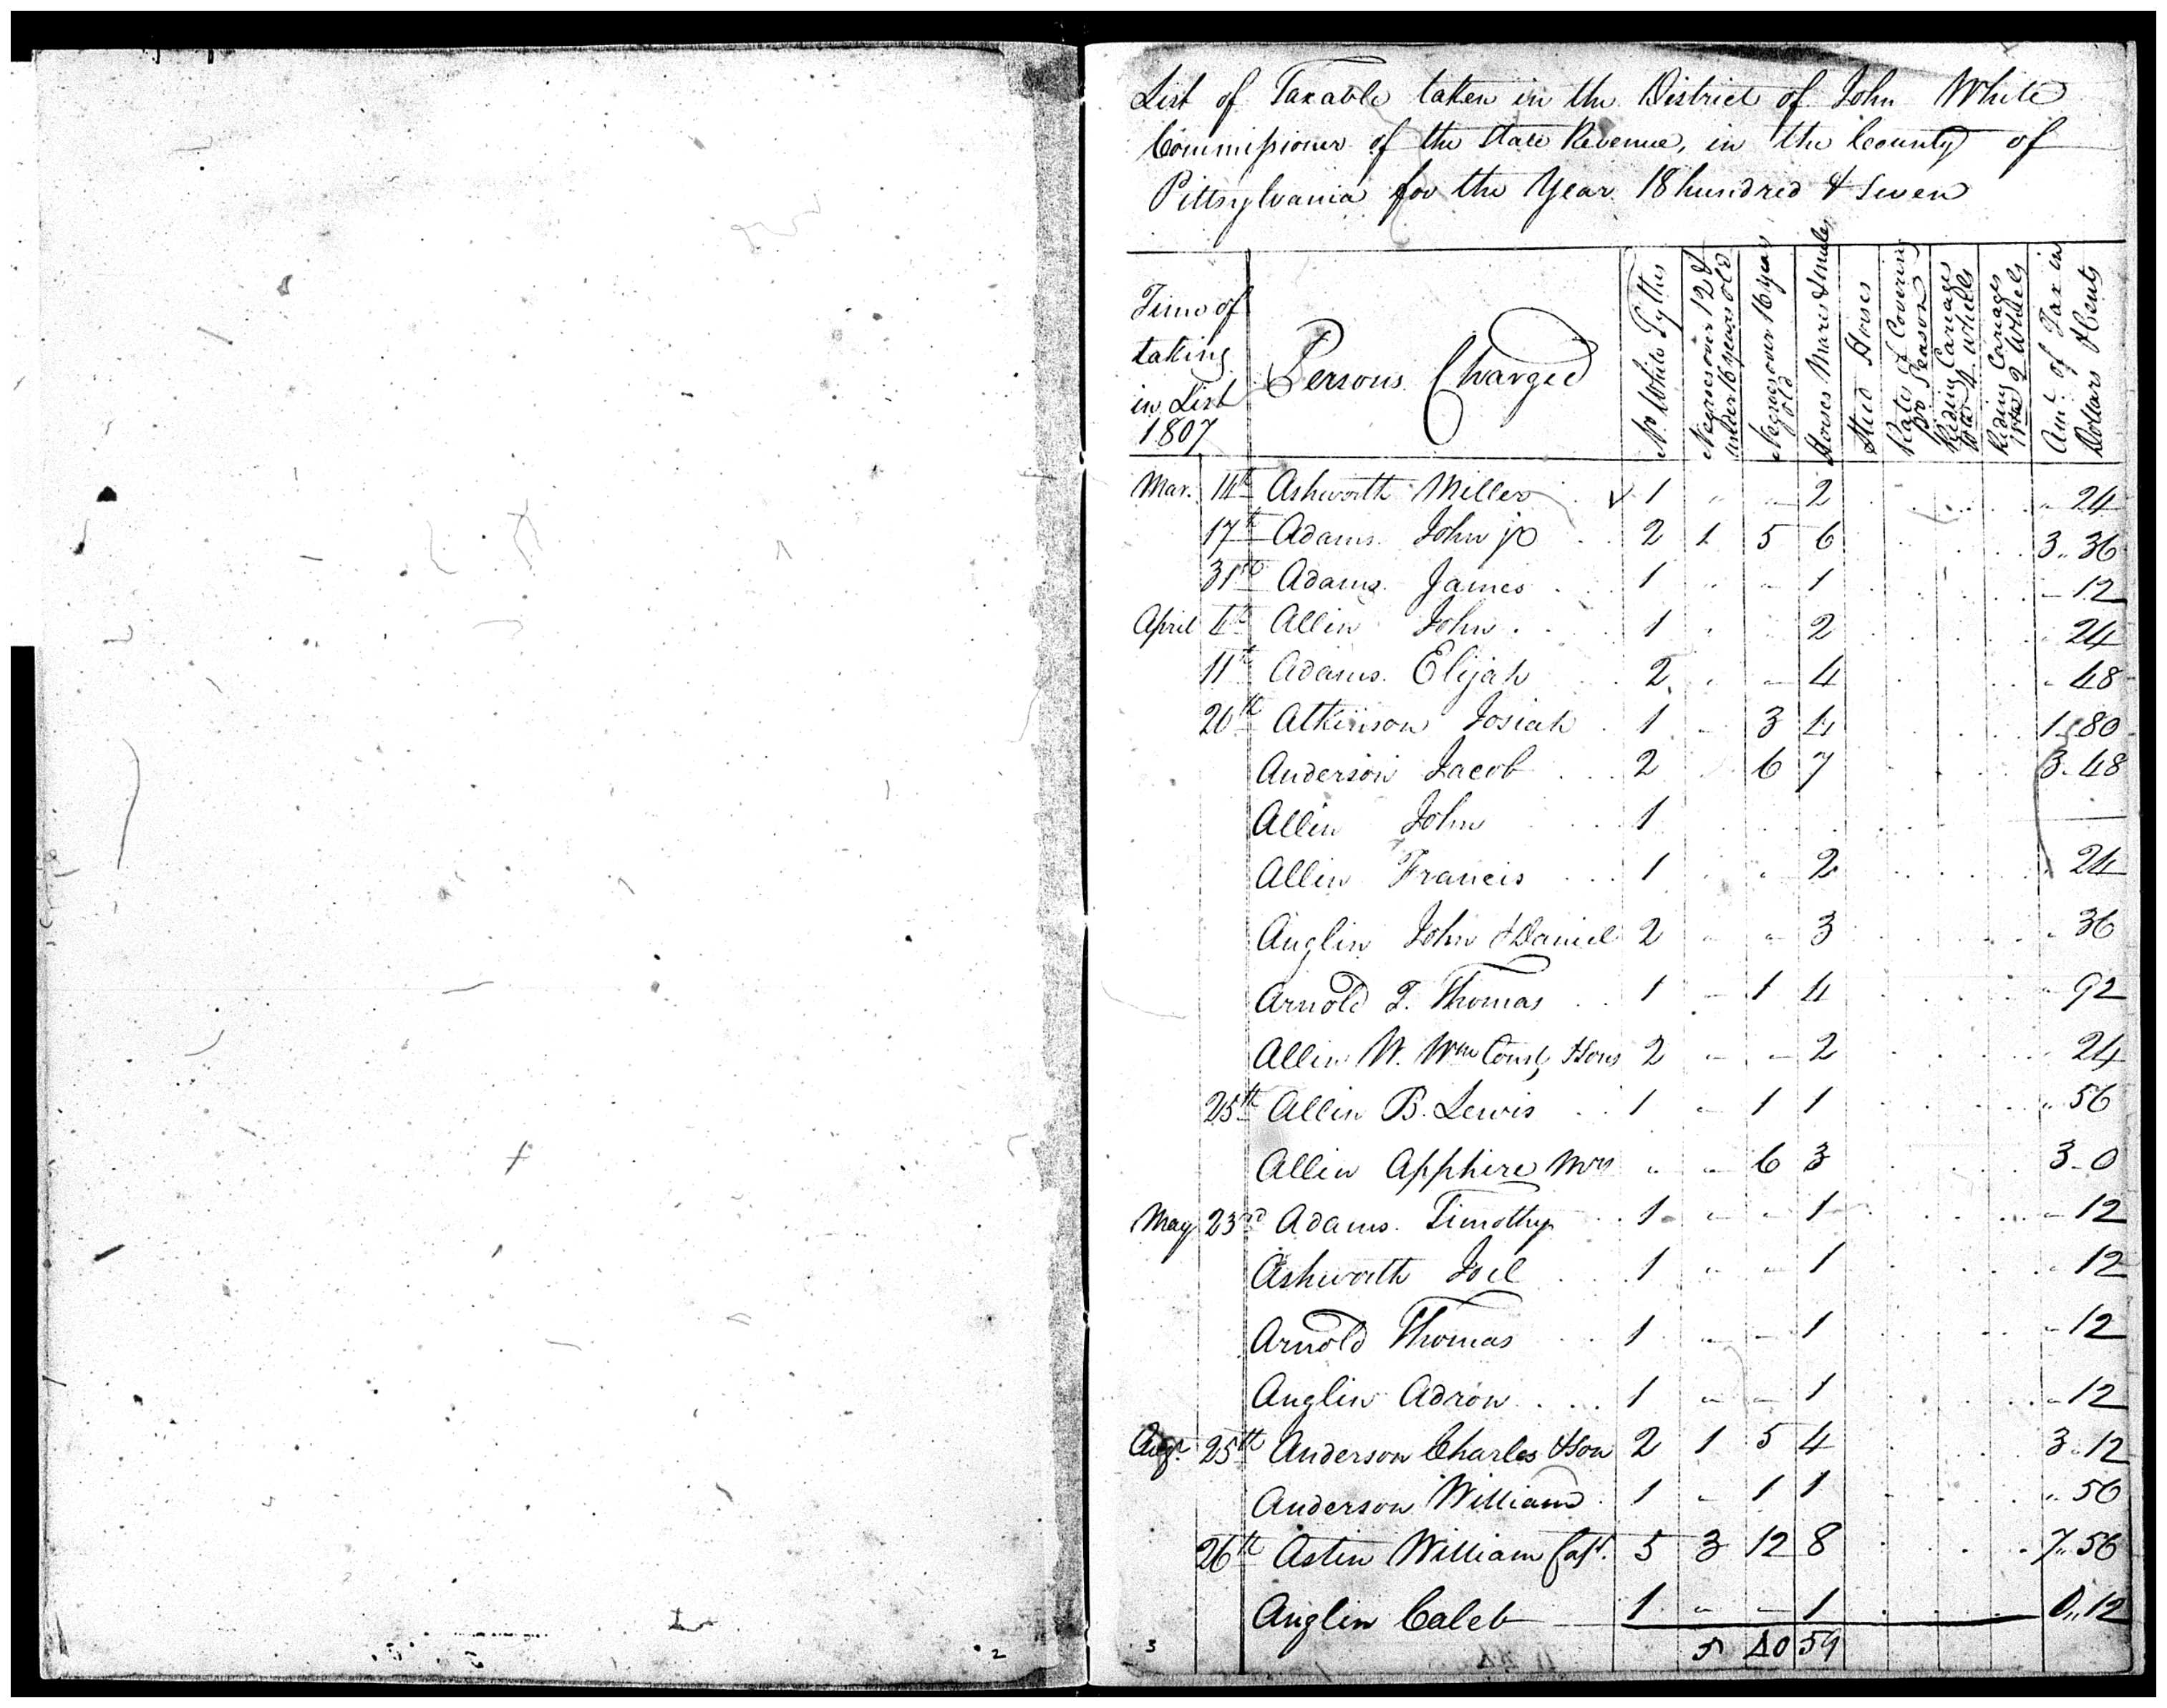 List of Taxable taken in the District of John White
Commissioner of the State Revenue, in the County of
Pittsylvania for the Year 18 hundred & Seven
Time of
taking
in List
1807
Persons Charged
No. White Tythes
Negroes over 12 &
under 16 years old
Negroes over 16 years
old
Horses Mares & Mules
Stud Horses
Rates of Covering
pr Season
Riding Carriages
4 Wheels
Riding Carriages
2 Wheels
Amt. of Tax in
Dollars & Cents
Mar. 14th Ashworth Miller 1 2 24
17th Adams John jr 2 1 5 6 3.. 36
31st Adams James 1 1 12
April 4th Allin John 1 2 24
11th Adams Elijah 2 4 48
20th Atkinson Josiah 1 3 4 1 80
Anderson Jacob 2 6 7 3. 48
Allin John 1
Allin Francis 1 2 24
Anglin John & Daniel 2 3 36
Arnold T. Thomas 1 1 4 92
Allin W. Wm Const, & Sons 2 2 24
25th Allin B. Lewis 1 1 1 56
Allin Apphire Mrs 6 3 3 - 0
May 23rd Adams Timothy 1 1 12
Ashworth Joel 1 1 12
Arnold Thomas 1 1 12
Anglin Adron 1 1 12
Augt. 25th Anderson Charles & Son 2 1 5 4 3. 12
Anderson William 1 1 1 56
26th Astin William Capt. 5 3 12 8 7.. 56
Anglin Caleb 1 1 0.. 12
5 40 59
2
3